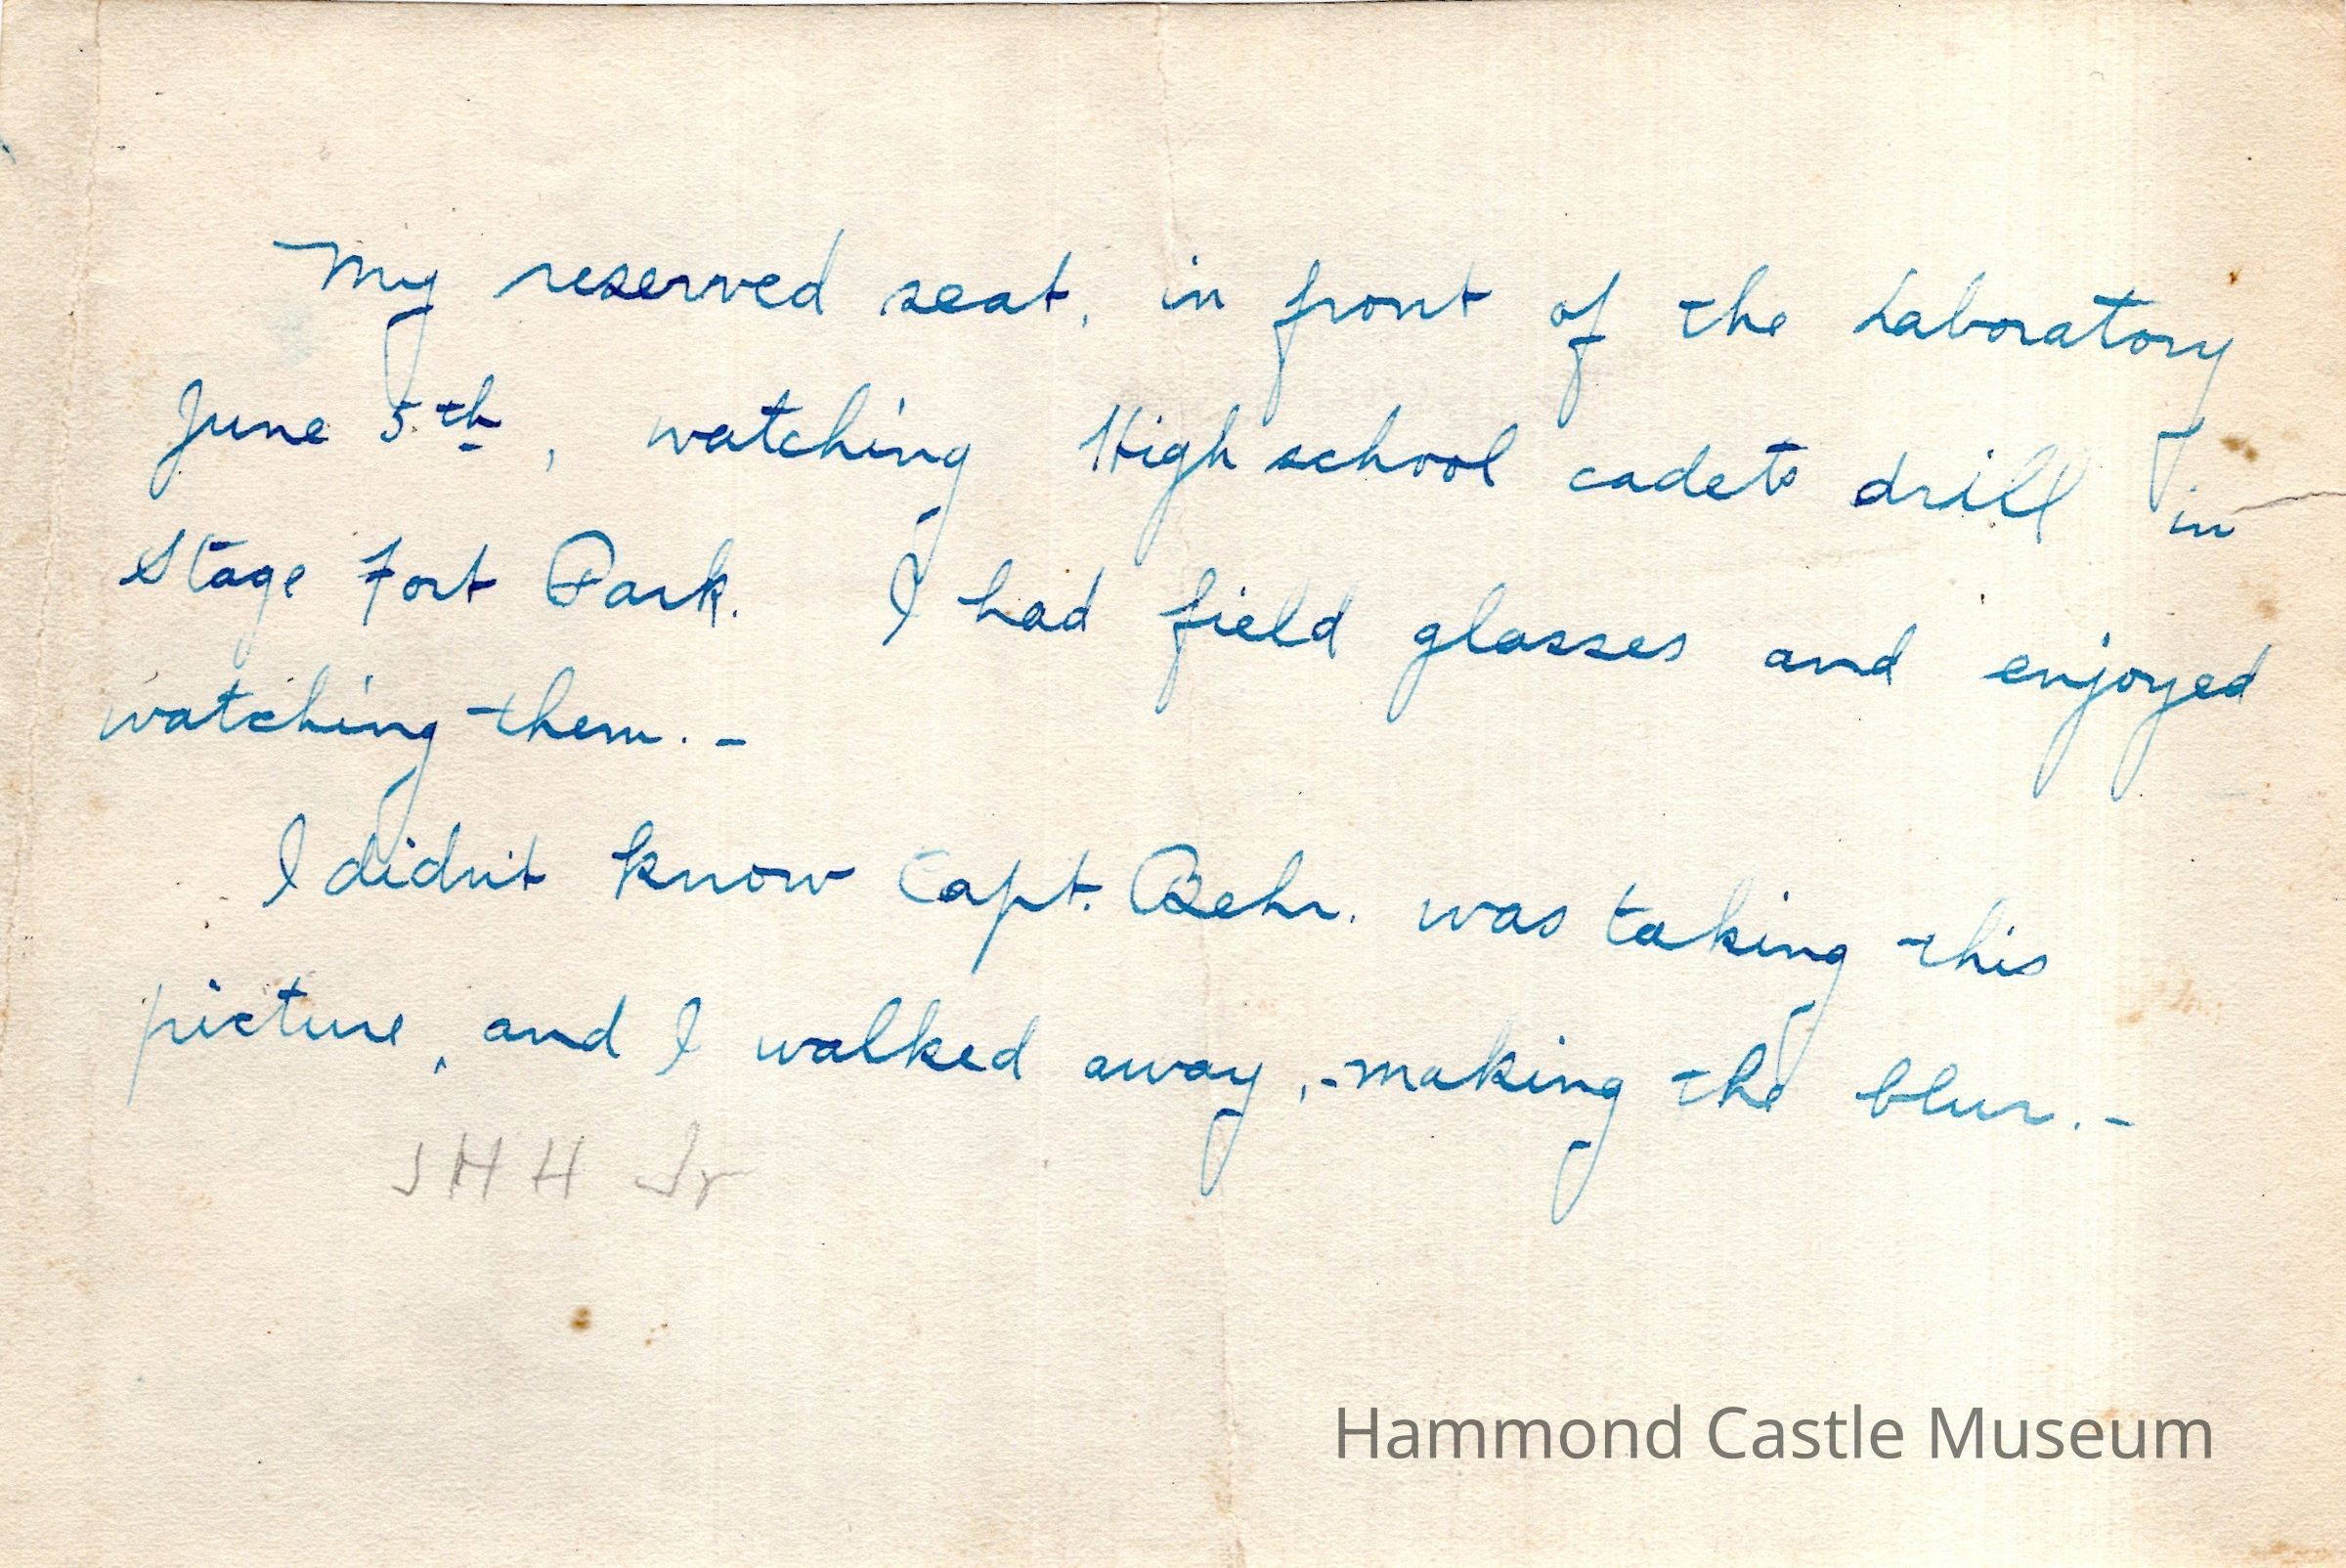 My reserved seat, in front of the Laboratory
June 5th, watching High school cadets drill in
Stage Fort Park. I had field glasses and enjoyed
watching them. -
I didn't know Capt. Behr. was taking this
picture, and I walked away, - making the blur. -
JHH Jr
Hammond Castle Museum